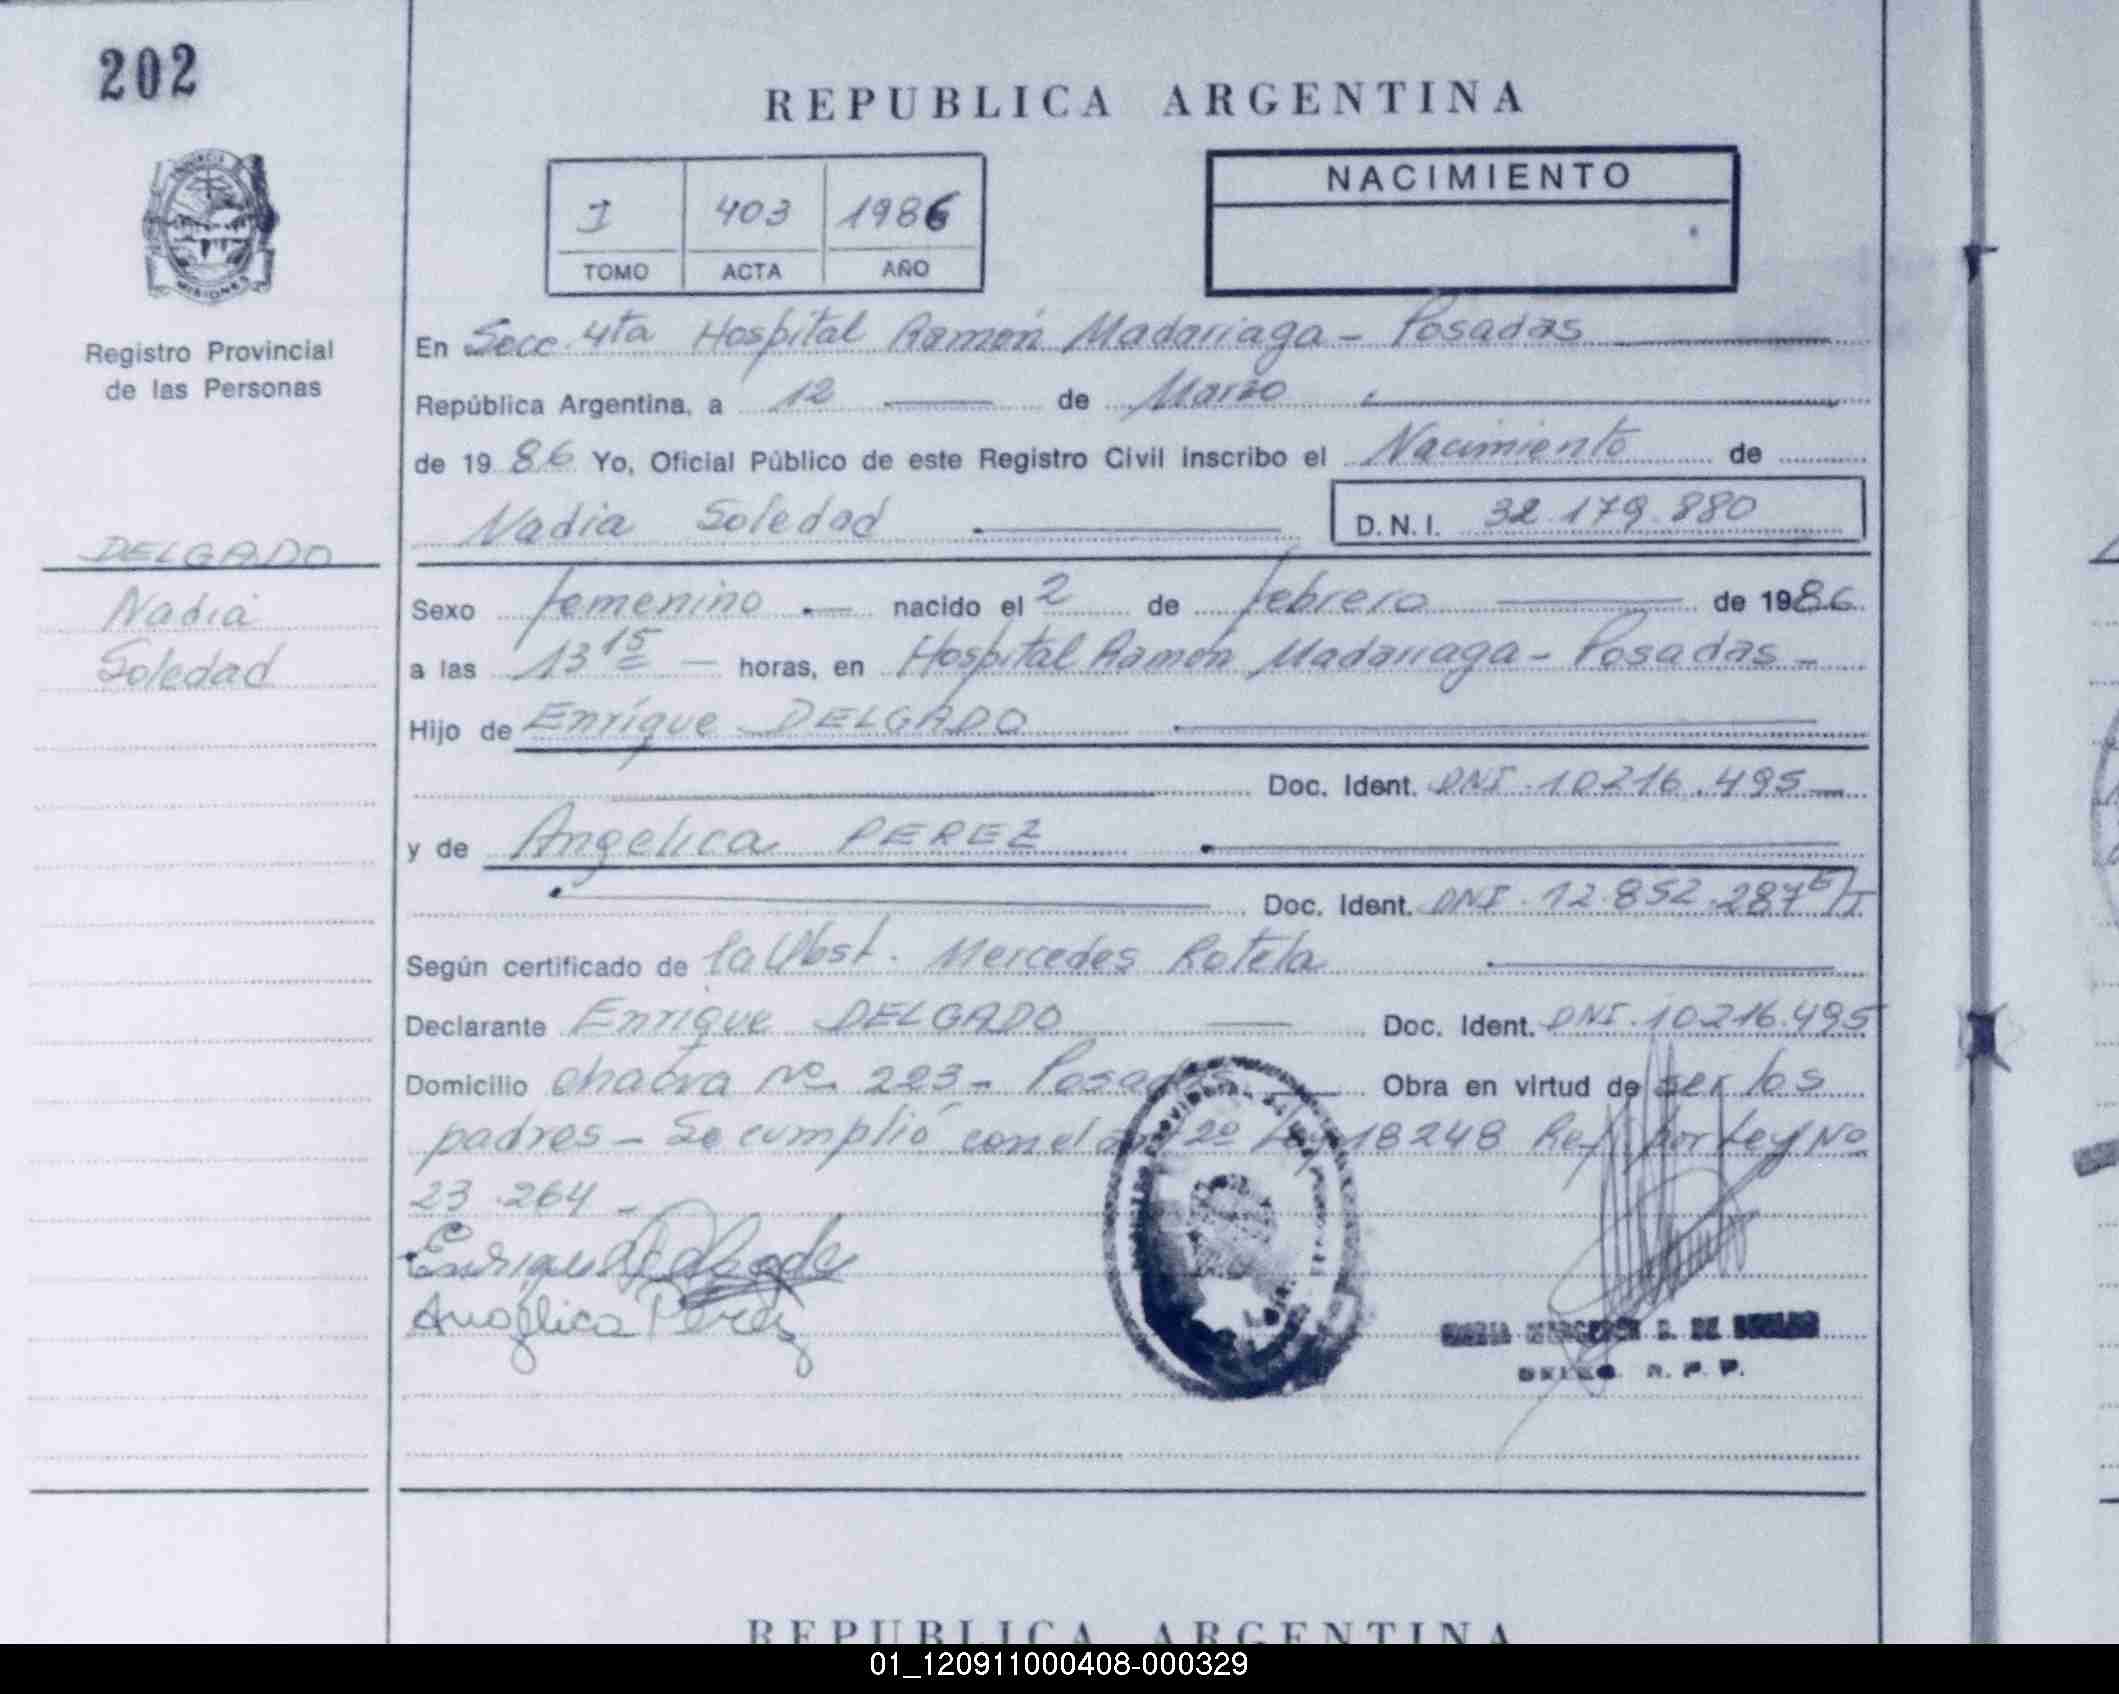 202
REPUBLICA ARGENTINA
I 403 1986
TOMO ACTA AÑO
NACIMIENTO
MISIONES
Registro Provincial
de las Personas
DELGADO
Nadia
Soledad
En Secc. 4ta Hospital Ramón Madariaga - Posadas
República Argentina, a 12 de Marzo
de 1986 Yo, Oficial Público de este Registro Civil inscribo el Nacimiento de
Nadia Soledad D.N.I. 32.179.880
Sexo femenino nacido el 2 de febrero de 1986
a las 13 15 horas, en Hospital Ramón Madariaga - Posadas -
Hijo de Enrique DELGADO
Doc. Ident. DNI. 10216.495
y de Angelica PEREZ
Doc. Ident. DNI. 12.852.287 E/T
Según certificado de la Obst. Mercedes Rotela
Declarante Enrique DELGADO Doc. Ident. DNI. 10216.495
Domicilio chacra Nº 223 - Posadas Obra en virtud de ser los
padres - Se cumplió con el art 2º Ley 18248 Ref. por Ley Nº
23.264 -
Enrique Delgado
Angelica Perez
MARIA MERCEDES S. DE
R. P. P.
REPUBLICA ARGENTINA
01_120911000408-000329